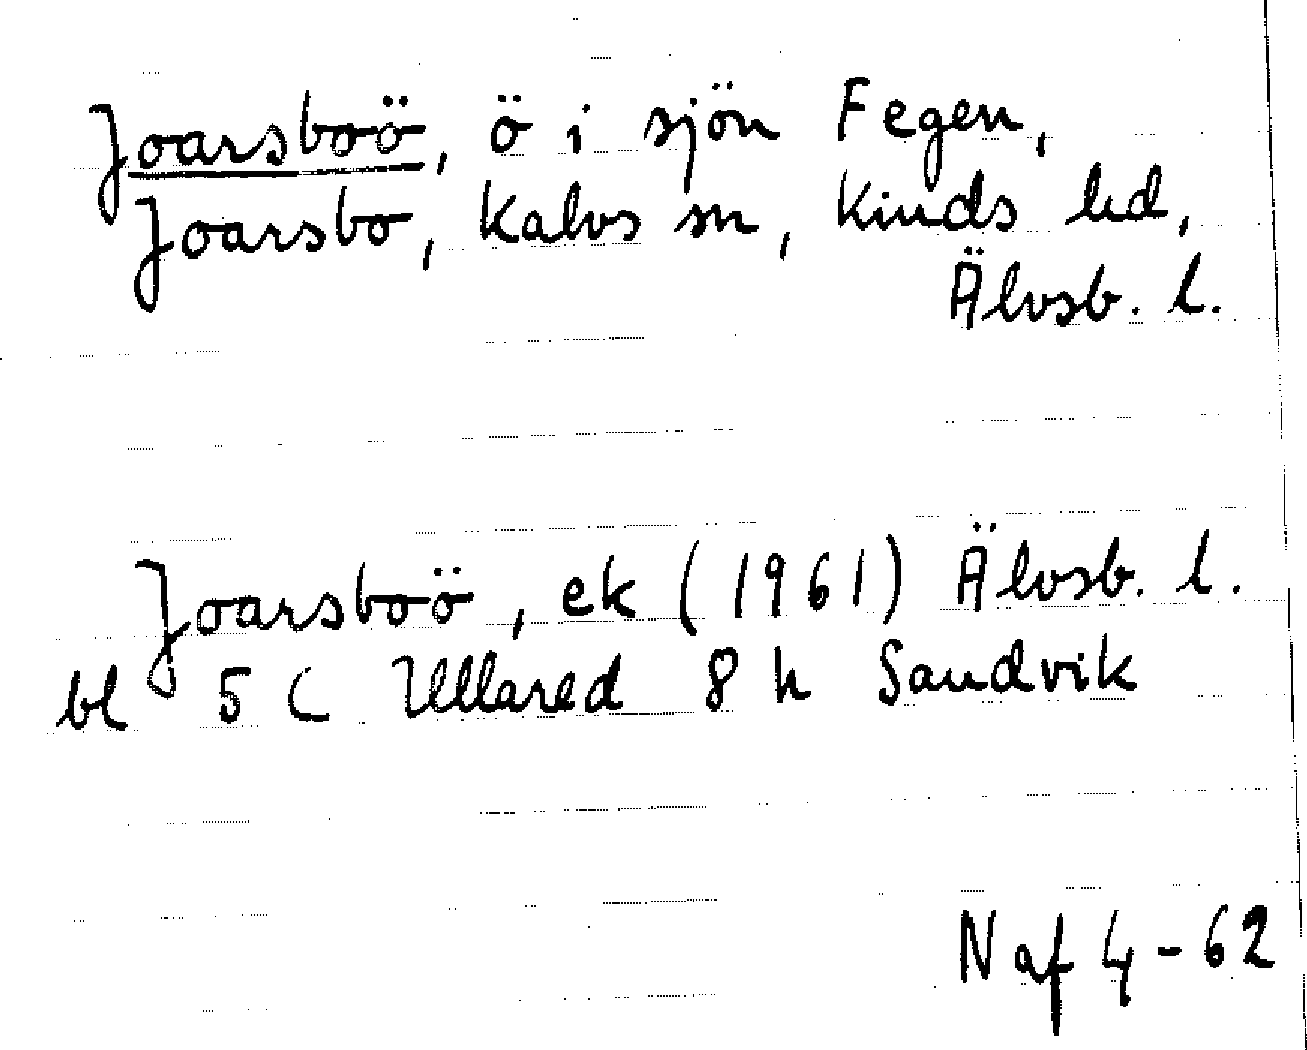 Joarsboö, ö i sjön Fegen,
Joarsbo, Kalvs sn, Kinds hd,
Älvsb. l.
Joarsboö, ek (1961) Älvsb. l.
bl 5 C Ullared 8 h Sandvik
Naf 4-62